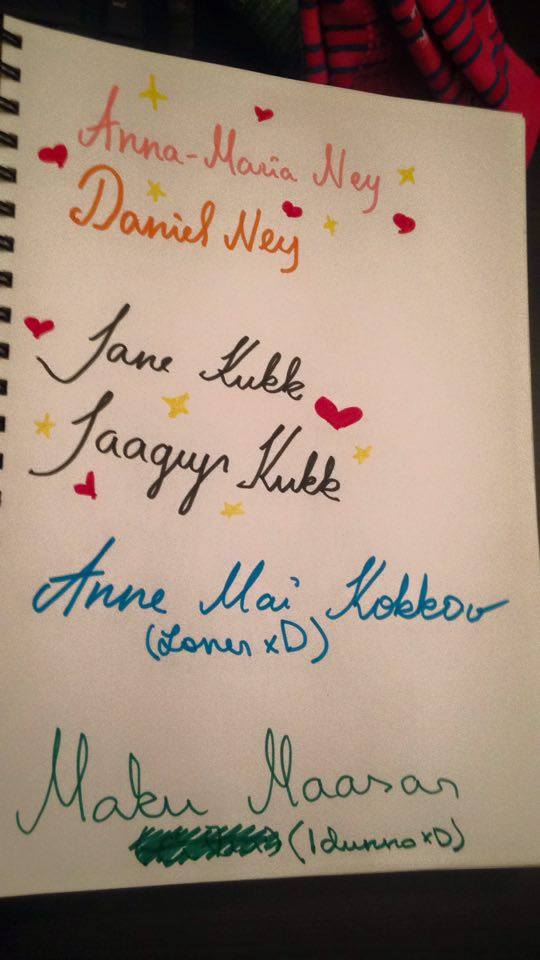 Anna-Maria Ney
Daniel Ney
Jane Kukk
Jaagup Kukk
Anne Mai Kokkov
(Loner xD)
Maku Maasar
(I dunno xD)